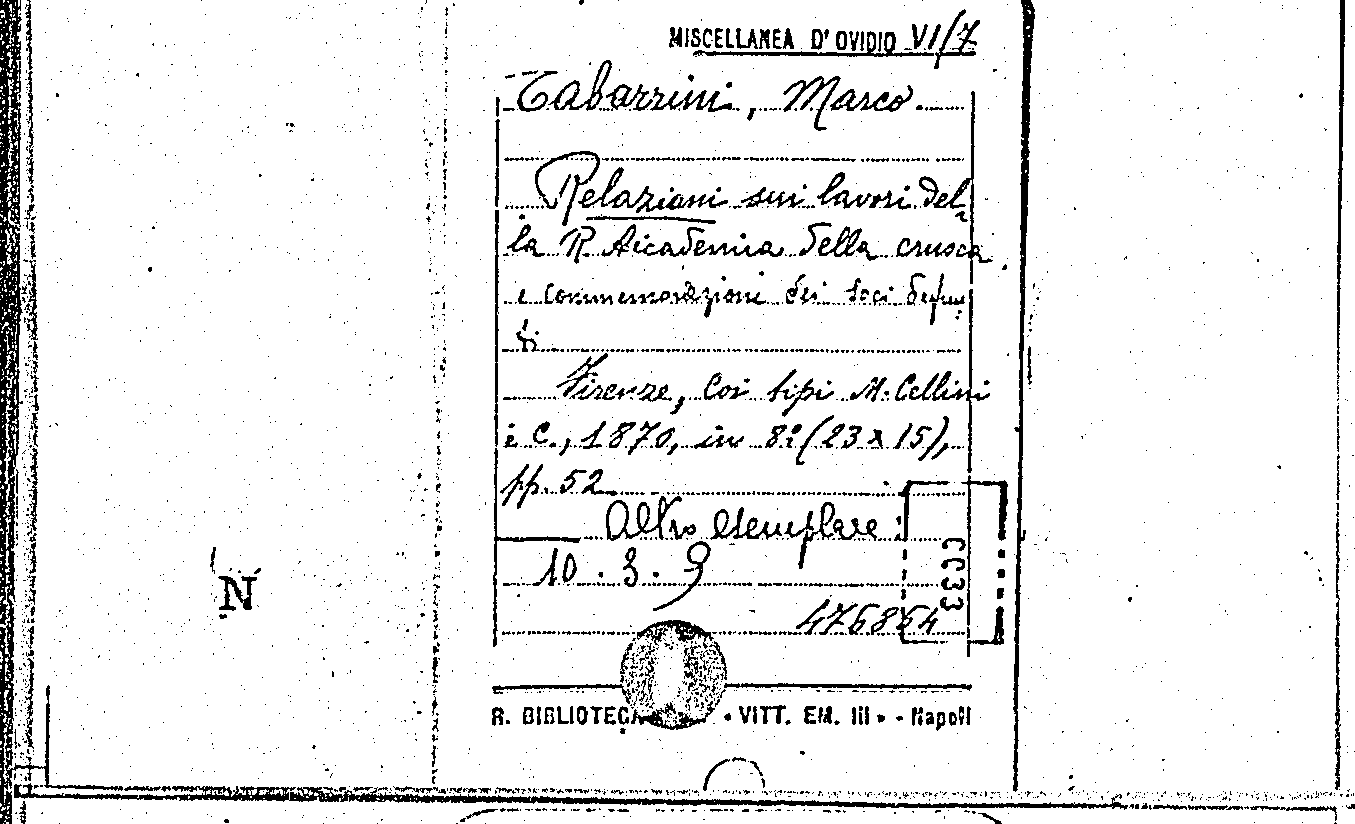 MISCELLANEA D'OVIDIO VI/7
Tabarrini, Marco.
Relazioni sui lavori del-
la R. Accademia della crusca
e commemorazioni dei soci defun-
ti
Firenze, Coi tipi M. Cellini
e C., 1870, in 8º (23 x 15),
pp. 52
Altro esemplare:
10. 3. 9
CC33
476854
N
R. BIBLIOTECA « VITT. EM. III » - Napoli